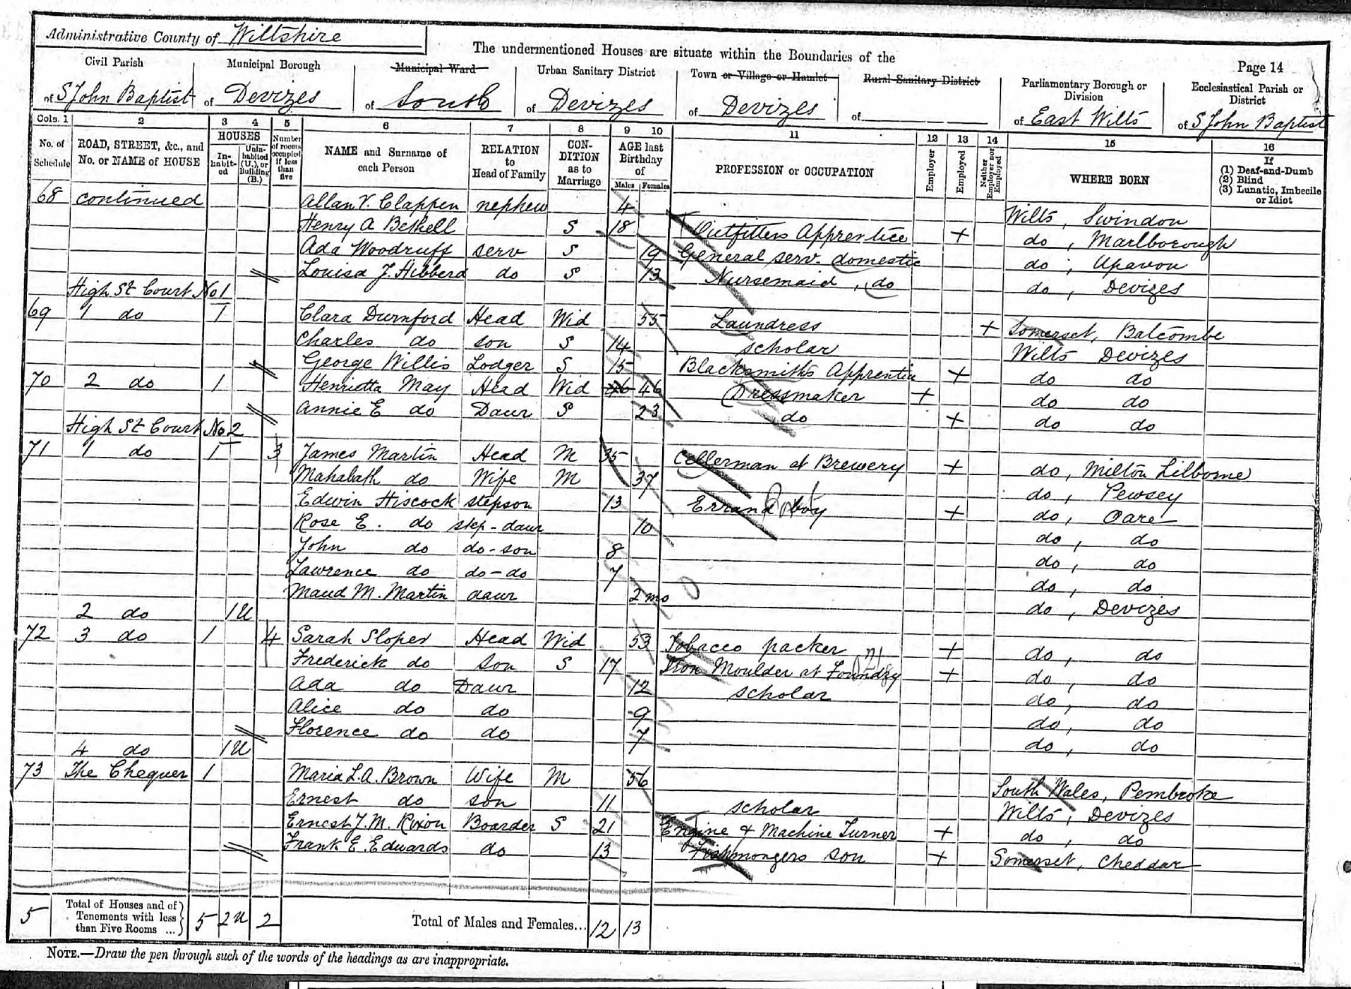 Administrative County of Wiltshire
The undermentioned Houses are situate within the Boundaries of the
Page 14
Civil Parish of St John Baptist
Municipal Borough of Devizes
Municipal Ward of South
Urban Sanitary District of Devizes
Town or Village or Hamlet of Devizes
Rural Sanitary District of
Parliamentary Borough or Division of East Wilts
Ecclesiastical Parish or District of St John Baptist
Cols. 1 2 3 4 5 6 7 8 9 10 11 12 13 14 15 16
No. of Schedule
ROAD, STREET, &c., and No. or NAME of HOUSE
HOUSES
Inhabited
Uninhabited (U.), or Building (B.)
Number of rooms occupied if less than five
NAME and Surname of each Person
RELATION to Head of Family
CONDITION as to Marriage
AGE last Birthday of
Males Females
PROFESSION or OCCUPATION
Employer
Employed
Neither Employer nor Employed
WHERE BORN
If
(1) Deaf-and-Dumb
(2) Blind
(3) Lunatic, Imbecile or Idiot
68 continued Allan V. Clappen nephew 4 Wilts, Swindon
Henry A Bethell S 18 Outfitters Apprentice + do, Marlborough
Ada Woodruff serv S 19 General serv. domestic do, Upavon
Louisa J. Hibberd do S 13 Nursemaid, do do, Devizes
High St Court No 1
69 1 do 1 Clara Durnford Head Wid 55 Laundress + Somerset, Batcombe
Charles do son S 14 scholar Wilts Devizes
George Willis Lodger S 15 Blacksmiths Apprentice + do do
70 2 do 1 Henrietta May Head Wid 46 46 Dressmaker + do do
Annie E do Daur S 23 do + do do
High St Court No 2
71 1 do 1 3 James Martin Head M 35 Cellerman at Brewery + do, Milton Lilborne
Mahalath do Wife M 37 do, Pewsey
Edwin Hiscock stepson 13 Errand boy + do, Oare
Rose E. do step-daur 10 do, do
John do do-son 8 do, do
Lawrence do do-do 7 do, do
Maud M. Martin daur 2 mo do, Devizes
2 do 1U
72 3 do 1 4 Sarah Sloper Head Wid 53 Tobacco packer + do, do
Frederick do Son S 17 Iron Moulder at Foundry + do, do
Ada do Daur 12 scholar do, do
Alice do do 9 do, do
Florence do do 7 do, do
4 do 1U
73 The Chequer 1 Maria L.A. Brown Wife M 56 South Wales, Pembroke
Ernest do son 11 scholar Wilts, Devizes
Ernest J. M. Roxon Boarder S 21 Engine & Machine Turner + do, do
Frank E. Edwards do 13 Fishmongers son + Somerset, Cheddar
5 Total of Houses and of Tenements with less than Five Rooms ... 5 2U 2 Total of Males and Females... 12 13
NOTE.—Draw the pen through such of the words of the headings as are inappropriate.